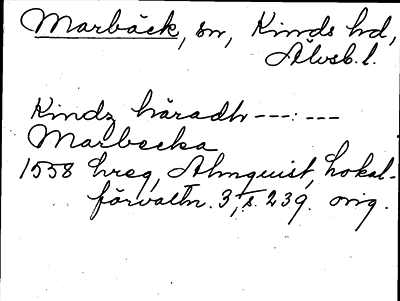 Marbäck, sn, Kinds hd,
Älvsb. l.
Kindz häradh ---:---
Marbecka
1558 hreg, Almquist, Lokal-
förvaltn. 3, s. 239. orig.